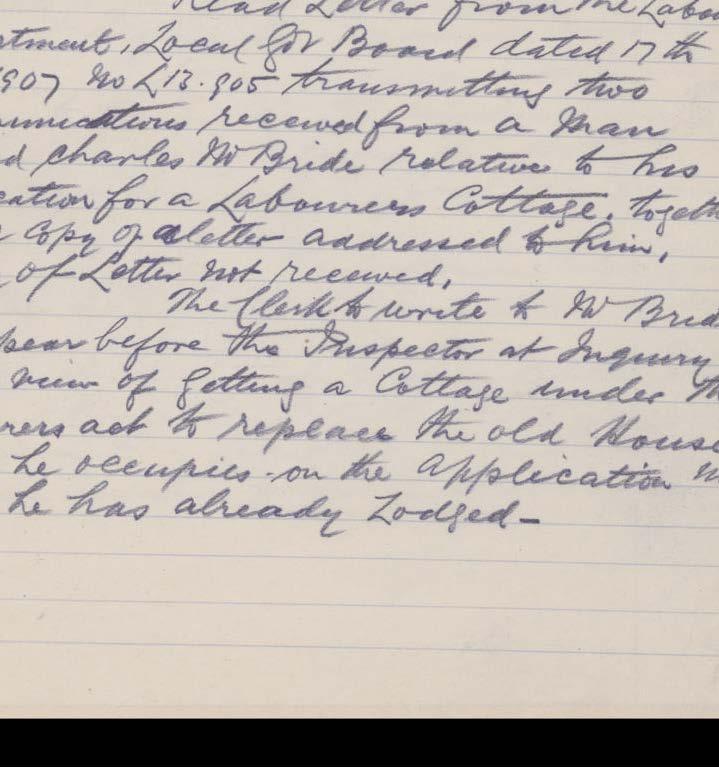 Read Letter from the Labou
rtment, Local Gov Board dated 17th
1907 No L 13.905 transmitting two
munications received from a Man
d Charles McBride relative to his
cation for a Labourers Cottage, togeth
copy of a letter addressed to him,
of Letter not received.
The Clerk to write to McBrid
pear before the Inspector at Inquiry
view of getting a Cottage under th
rers act to replace the old House
he occupies on the application
he has already Lodged –